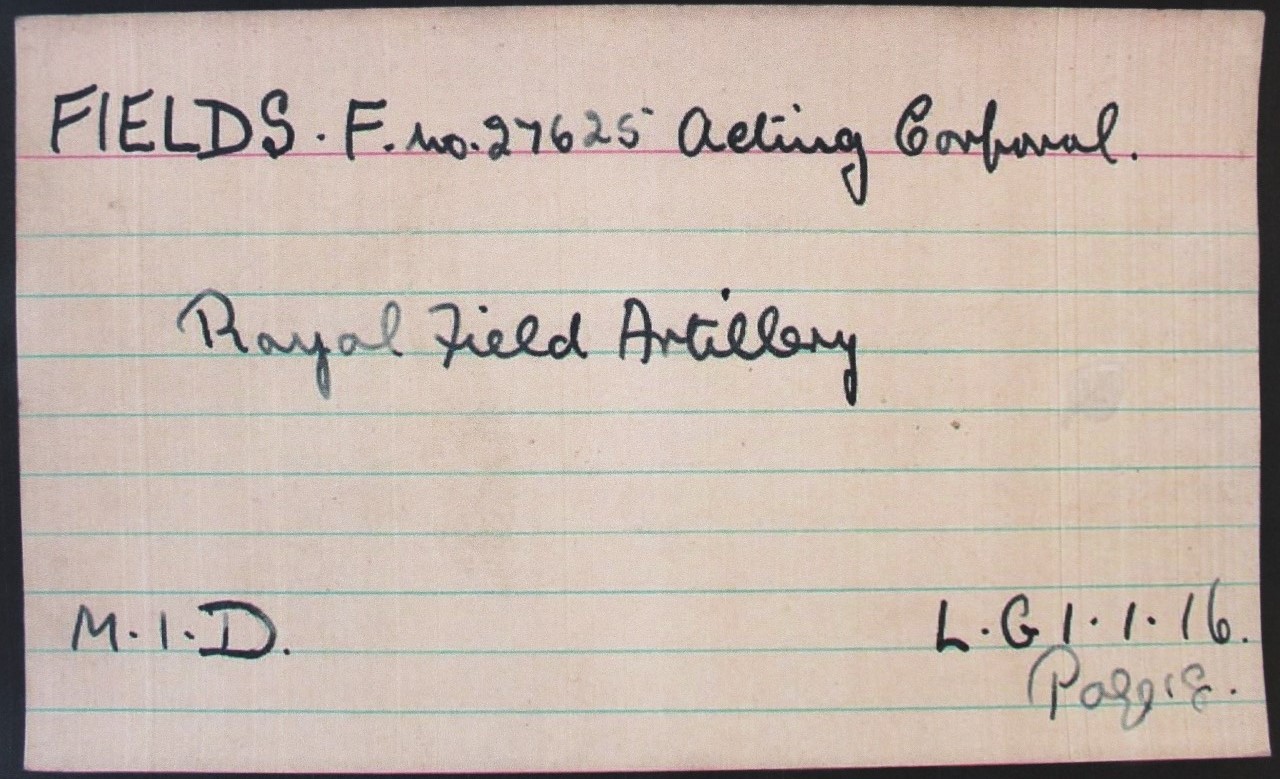 FIELDS. F. no. 27625 Acting Corporal.
Royal Field Artillery
M.I.D.
L.G 1.1.16.